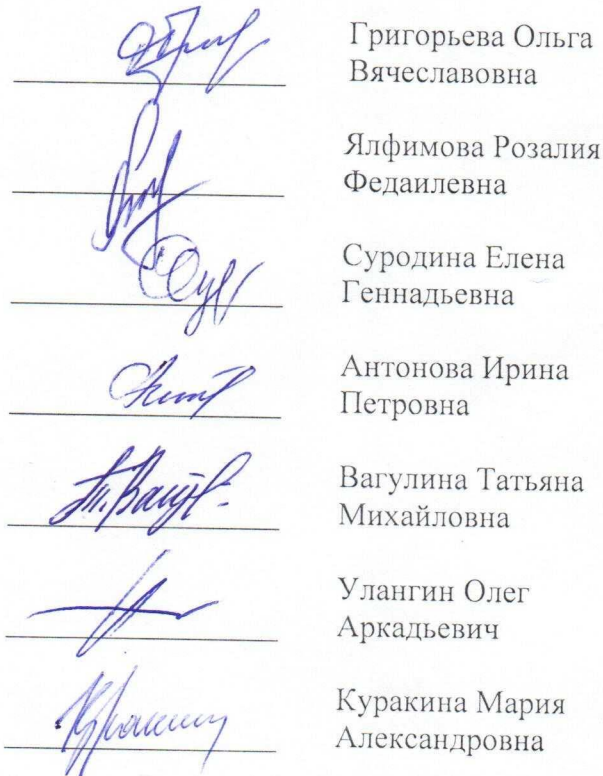 Григорьева Ольга
Вячеславовна
Ялфимова Розалия
Федаилевна
Суродина Елена
Геннадьевна
Антонова Ирина
Петровна
Вагулина Татьяна
Михайловна
Улангин Олег
Аркадьевич
Куракина Мария
Александровна